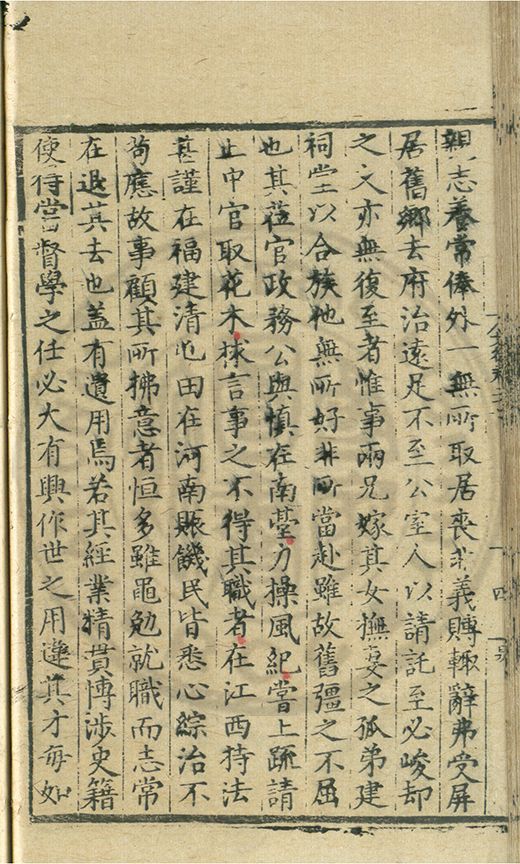 親志養常俸外一無所取居喪非義賻輒辭弗受屏
居舊鄉去府治遠足不至公室人以請託至必峻却
之文亦無復至者惟事兩兄嫁其女撫妻之孤弟建
祠堂以合族他無所好非所當赴雖故舊彊之不屈
也其莅官政務公與慎在南臺力操風紀嘗上疏請
止中官取花木捄言事之不得其職者在江西持法
甚謹在福建清屯田在河南賑饑民皆悉心綜治不
苟應故事顧其所拂意者恒多雖黽勉就職而志常
在退其去也蓋有遺用焉若其經業精貫博涉史籍
使得當督學之任必大有興作世之用違其才每如
四